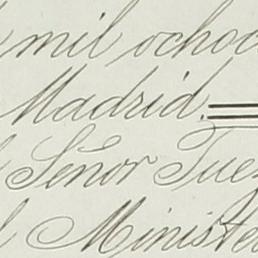 mil ochoc
Madrid.
Señor Juez
Ministe